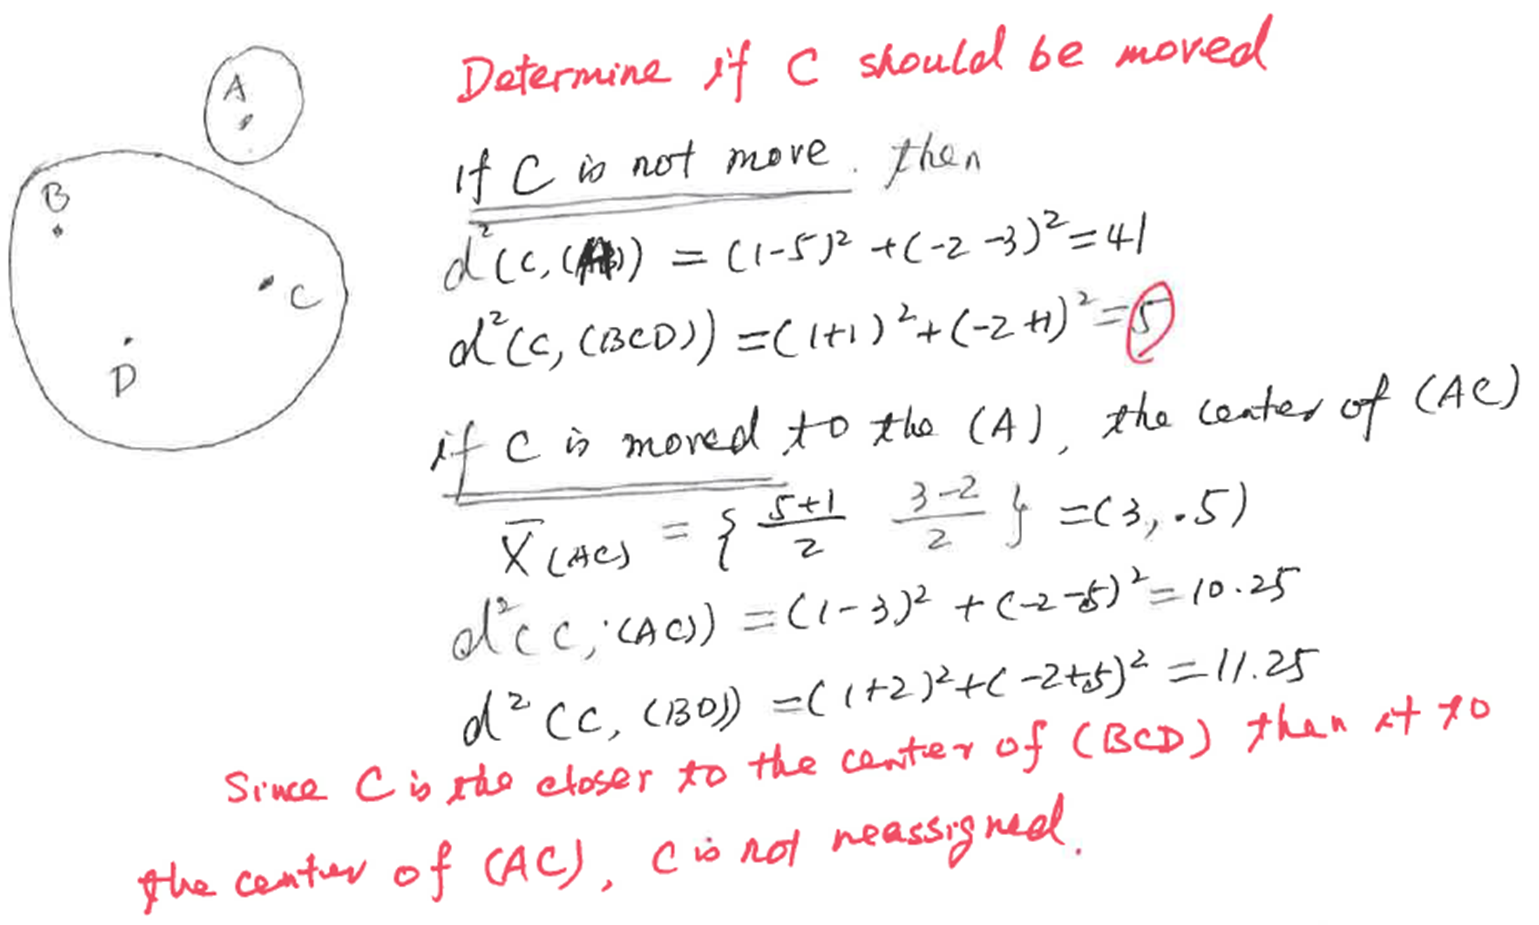 A
B
C
D
Determine if C should be moved
If C is not move. then
d²(C, (A)) = (1-5)² + (-2-3)² = 41
d²(C, (BCD)) = (1+1)² + (-2+1)² = 5
if C is moved to the (A), the center of (AC)
X̄(AC) = { 5+1/2 3-2/2 } = (3, .5)
d²(C, (AC)) = (1-3)² + (-2-.5)² = 10.25
d²(C, (BD)) = (1+2)² + (-2+.5)² = 11.25
Since C is the closer to the center of (BCD) then it to
the center of (AC), C is not reassigned.